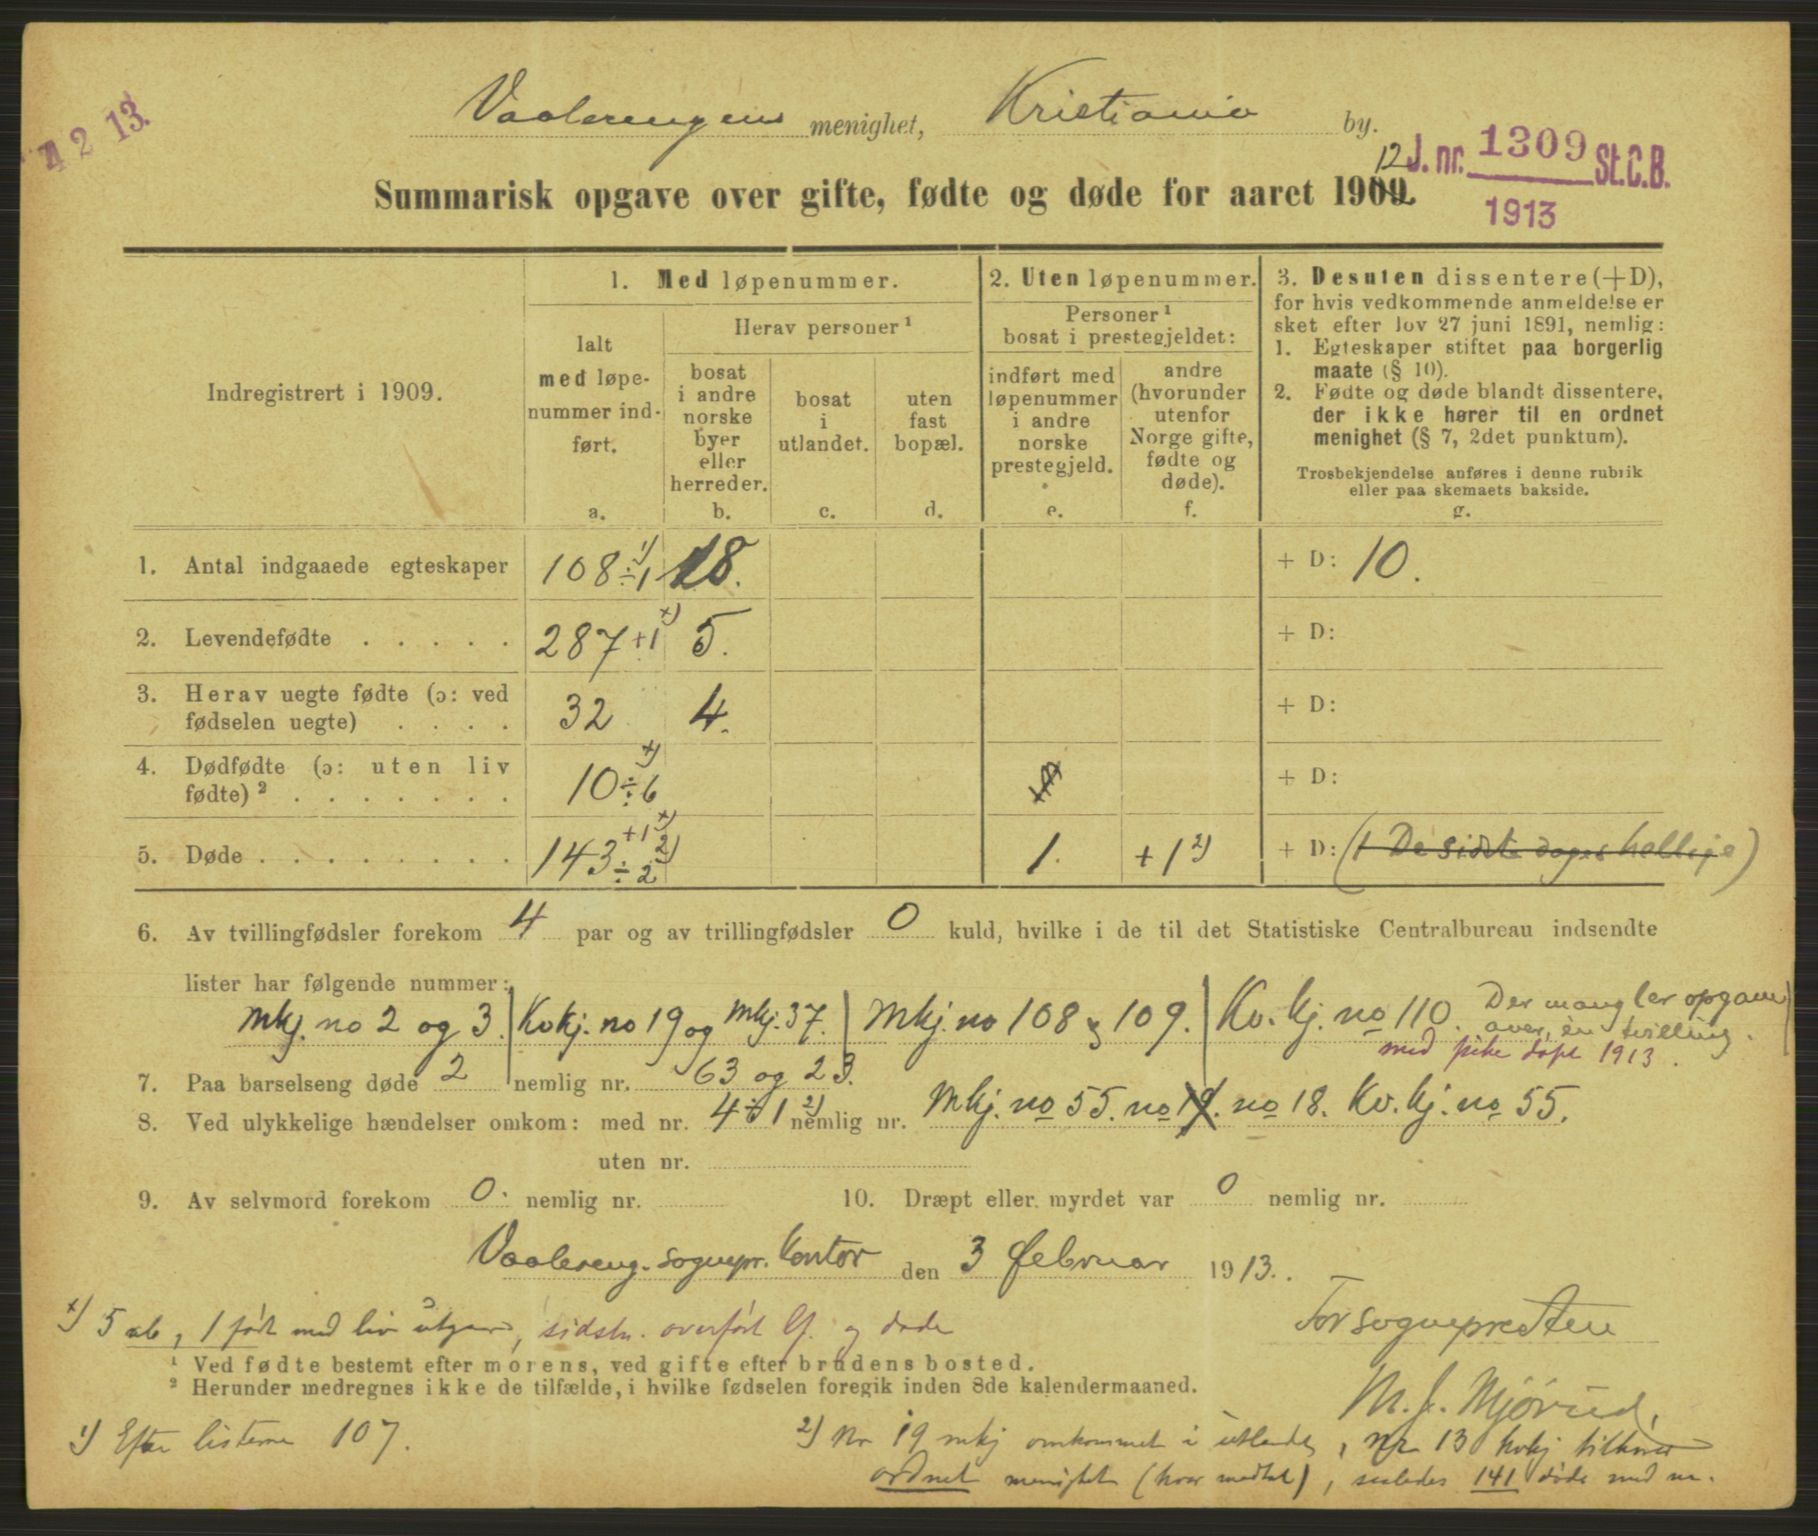 4 2 13.
Vaalerengens menighet, Kristiania by.
12 J. nr. 1309 St.C.B.
1913
Summarisk opgave over gifte, fødte og døde for aaret 1909.
Indregistrert i 1909.
1. Med løpenummer.
Ialt med løpe-
nummer ind-
ført.
a.
Herav personer ¹
bosat
i andre
norske
byer
eller
herreder.
b.
bosat
i
utlandet.
c.
uten
fast
bopæl.
d.
2. Uten løpenummer.
Personer ¹
bosat i prestegjeldet:
indført med
løpenummer
i andre
norske
prestegjeld.
e.
andre
(hvorunder
utenfor
Norge gifte,
fødte og
døde).
f.
3. Desuten dissentere (+D),
for hvis vedkommende anmeldelse er
sket efter lov 27 juni 1891, nemlig:
1. Egteskaper stiftet paa borgerlig
maate (§ 10).
2. Fødte og døde blandt dissentere,
der ikke hører til en ordnet
menighet (§ 7, 2det punktum).
Trosbekjendelse anføres i denne rubrik
eller paa skemaets bakside.
g.
1. Antal indgaaede egteskaper 108 ÷ 1 ¹) 18. + D: 10.
2. Levendefødte . . . . . 287 + 1 ×) 5. + D:
3. Herav uegte fødte (ɔ: ved
fødselen uegte) . . . . 32 4. + D:
4. Dødfødte (ɔ: uten liv
fødte) ² . . . . . . . 10 ÷ 6 ×) + D:
5. Døde . . . . . . . . 143 + 1 ×) ÷ 2 ²) 1. + 1 ²) + D: (1 De sidste dages hellige)
6. Av tvillingfødsler forekom 4 par og av trillingfødsler 0 kuld, hvilke i de til det Statistiske Centralbureau indsendte
lister har følgende nummer:
Mkj. no 2 og 3. | Kvkj. no 19 og Mkj. 37. | Mkj. no 108 & 109. | Kv. kj. no 110. Der mangler opgave
over én tvilling.
med pike døpt 1913.
7. Paa barselseng døde 2 nemlig nr. 63 og 23.
8. Ved ulykkelige hændelser omkom: med nr. 4 ÷ 1 ²) nemlig nr. Mkj. no 55. no 19. no 18. Kv. kj. no 55.
uten nr.
9. Av selvmord forekom 0. nemlig nr. 10. Dræpt eller myrdet var 0 nemlig nr.
Vaalereng. sognepr. kontor den 3 Februar 1913.
For sognepresten
M. J. Mjørud.
×) 5 ab, 1 født med liv utgaar, sidstn. overført lf. og døde
¹ Ved fødte bestemt efter morens, ved gifte efter brudens bosted.
² Herunder medregnes ikke de tilfælde, i hvilke fødselen foregik inden 8de kalendermaaned.
¹) Efter listerne 107.
²) Nr 19 mkj omkommet i utlandet, nr 13 kvkj tilhører
ordnet menighet (hver medtat), saaledes 141 døde med nr.